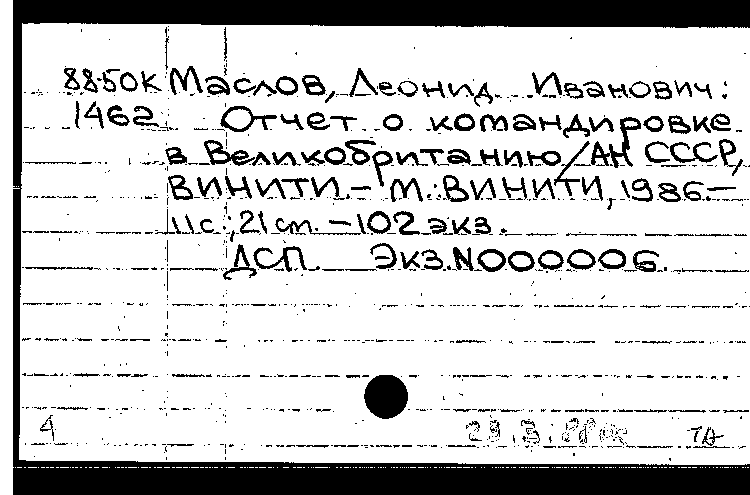 88-50К Маслов, Леонид Иванович:
1462 Отчет о командировке
в Великобританию/АН СССР,
ВИНИТИ.– М.: ВИНИТИ, 1986.–
11 с., 21 см. – 102 экз.
ДСП. Экз. N000006.
4